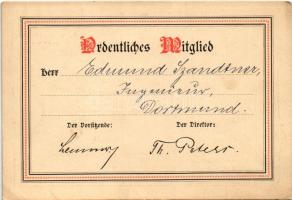 Ordentliches Mitglied
Herr Edmund Szandtner,
Ingenieur,
Dortmund.
Der Vorsitzende: Der Direktor:
Th. Peters.